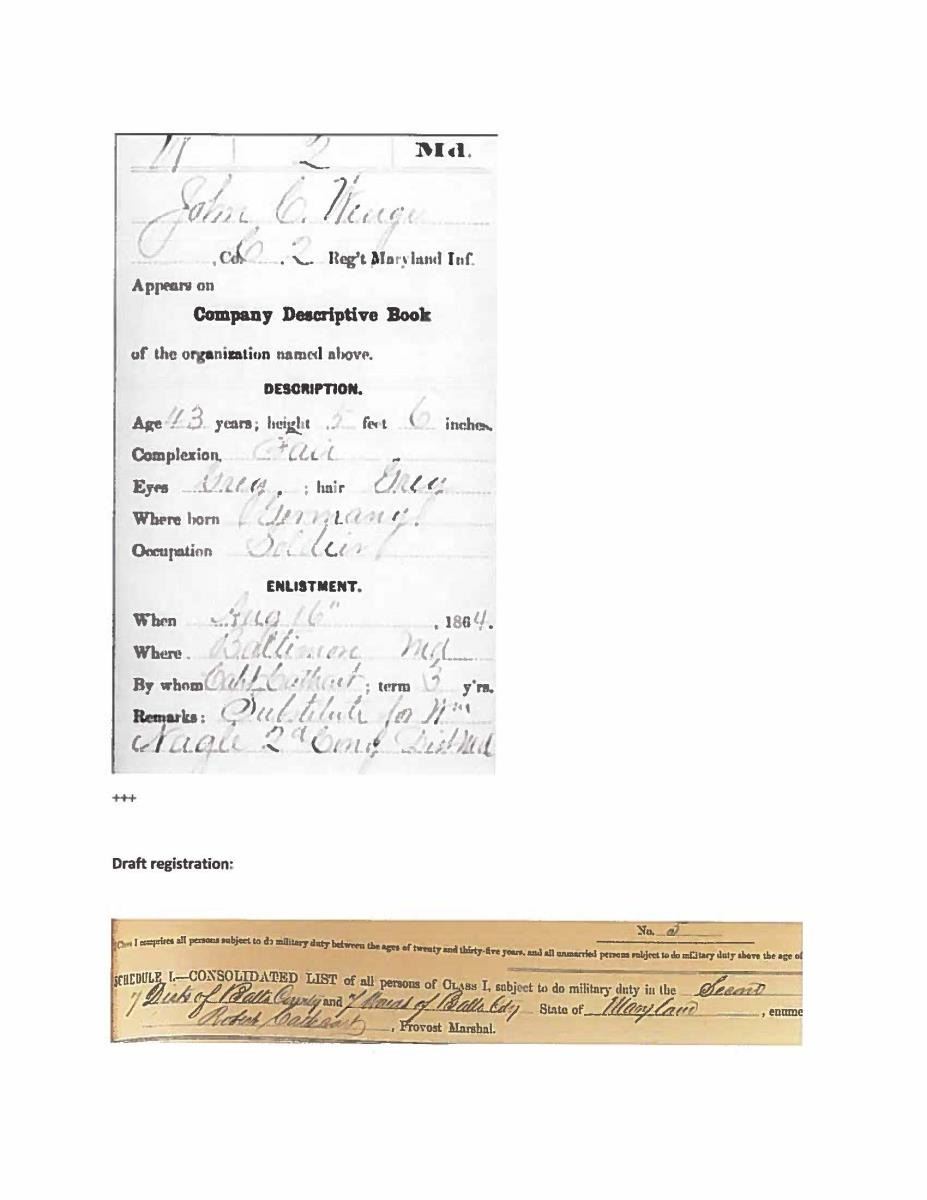 W 2 Md.
John C. Wenge
, Co. C, 2 Reg't Maryland Inf.
Appears on
Company Descriptive Book
of the organization named above.
DESCRIPTION.
Age 43 years; height 5 feet 6 inches.
Complexion, Fair
Eyes Grey, ; hair Grey
Where born Germany
Occupation Soldier
ENLISTMENT.
When Aug 16" , 1864.
Where Baltimore Md
By whom Capt Cathcart ; term 3 y'rs.
Remarks: Substitute for Wm
Nagle 2d Cong Dist Md
+++
Draft registration:
No. 5
(Class I comprises all persons subject to do military duty between the ages of twenty and thirty-five years, and all unmarried persons subject to do military duty above the age of
SCHEDULE I.—CONSOLIDATED LIST of all persons of CLASS I, subject to do military duty in the Second
7 Dists of Balto County and 7 Wards of Balto City State of Maryland , enume
Robert Cathcart , Provost Marshal.